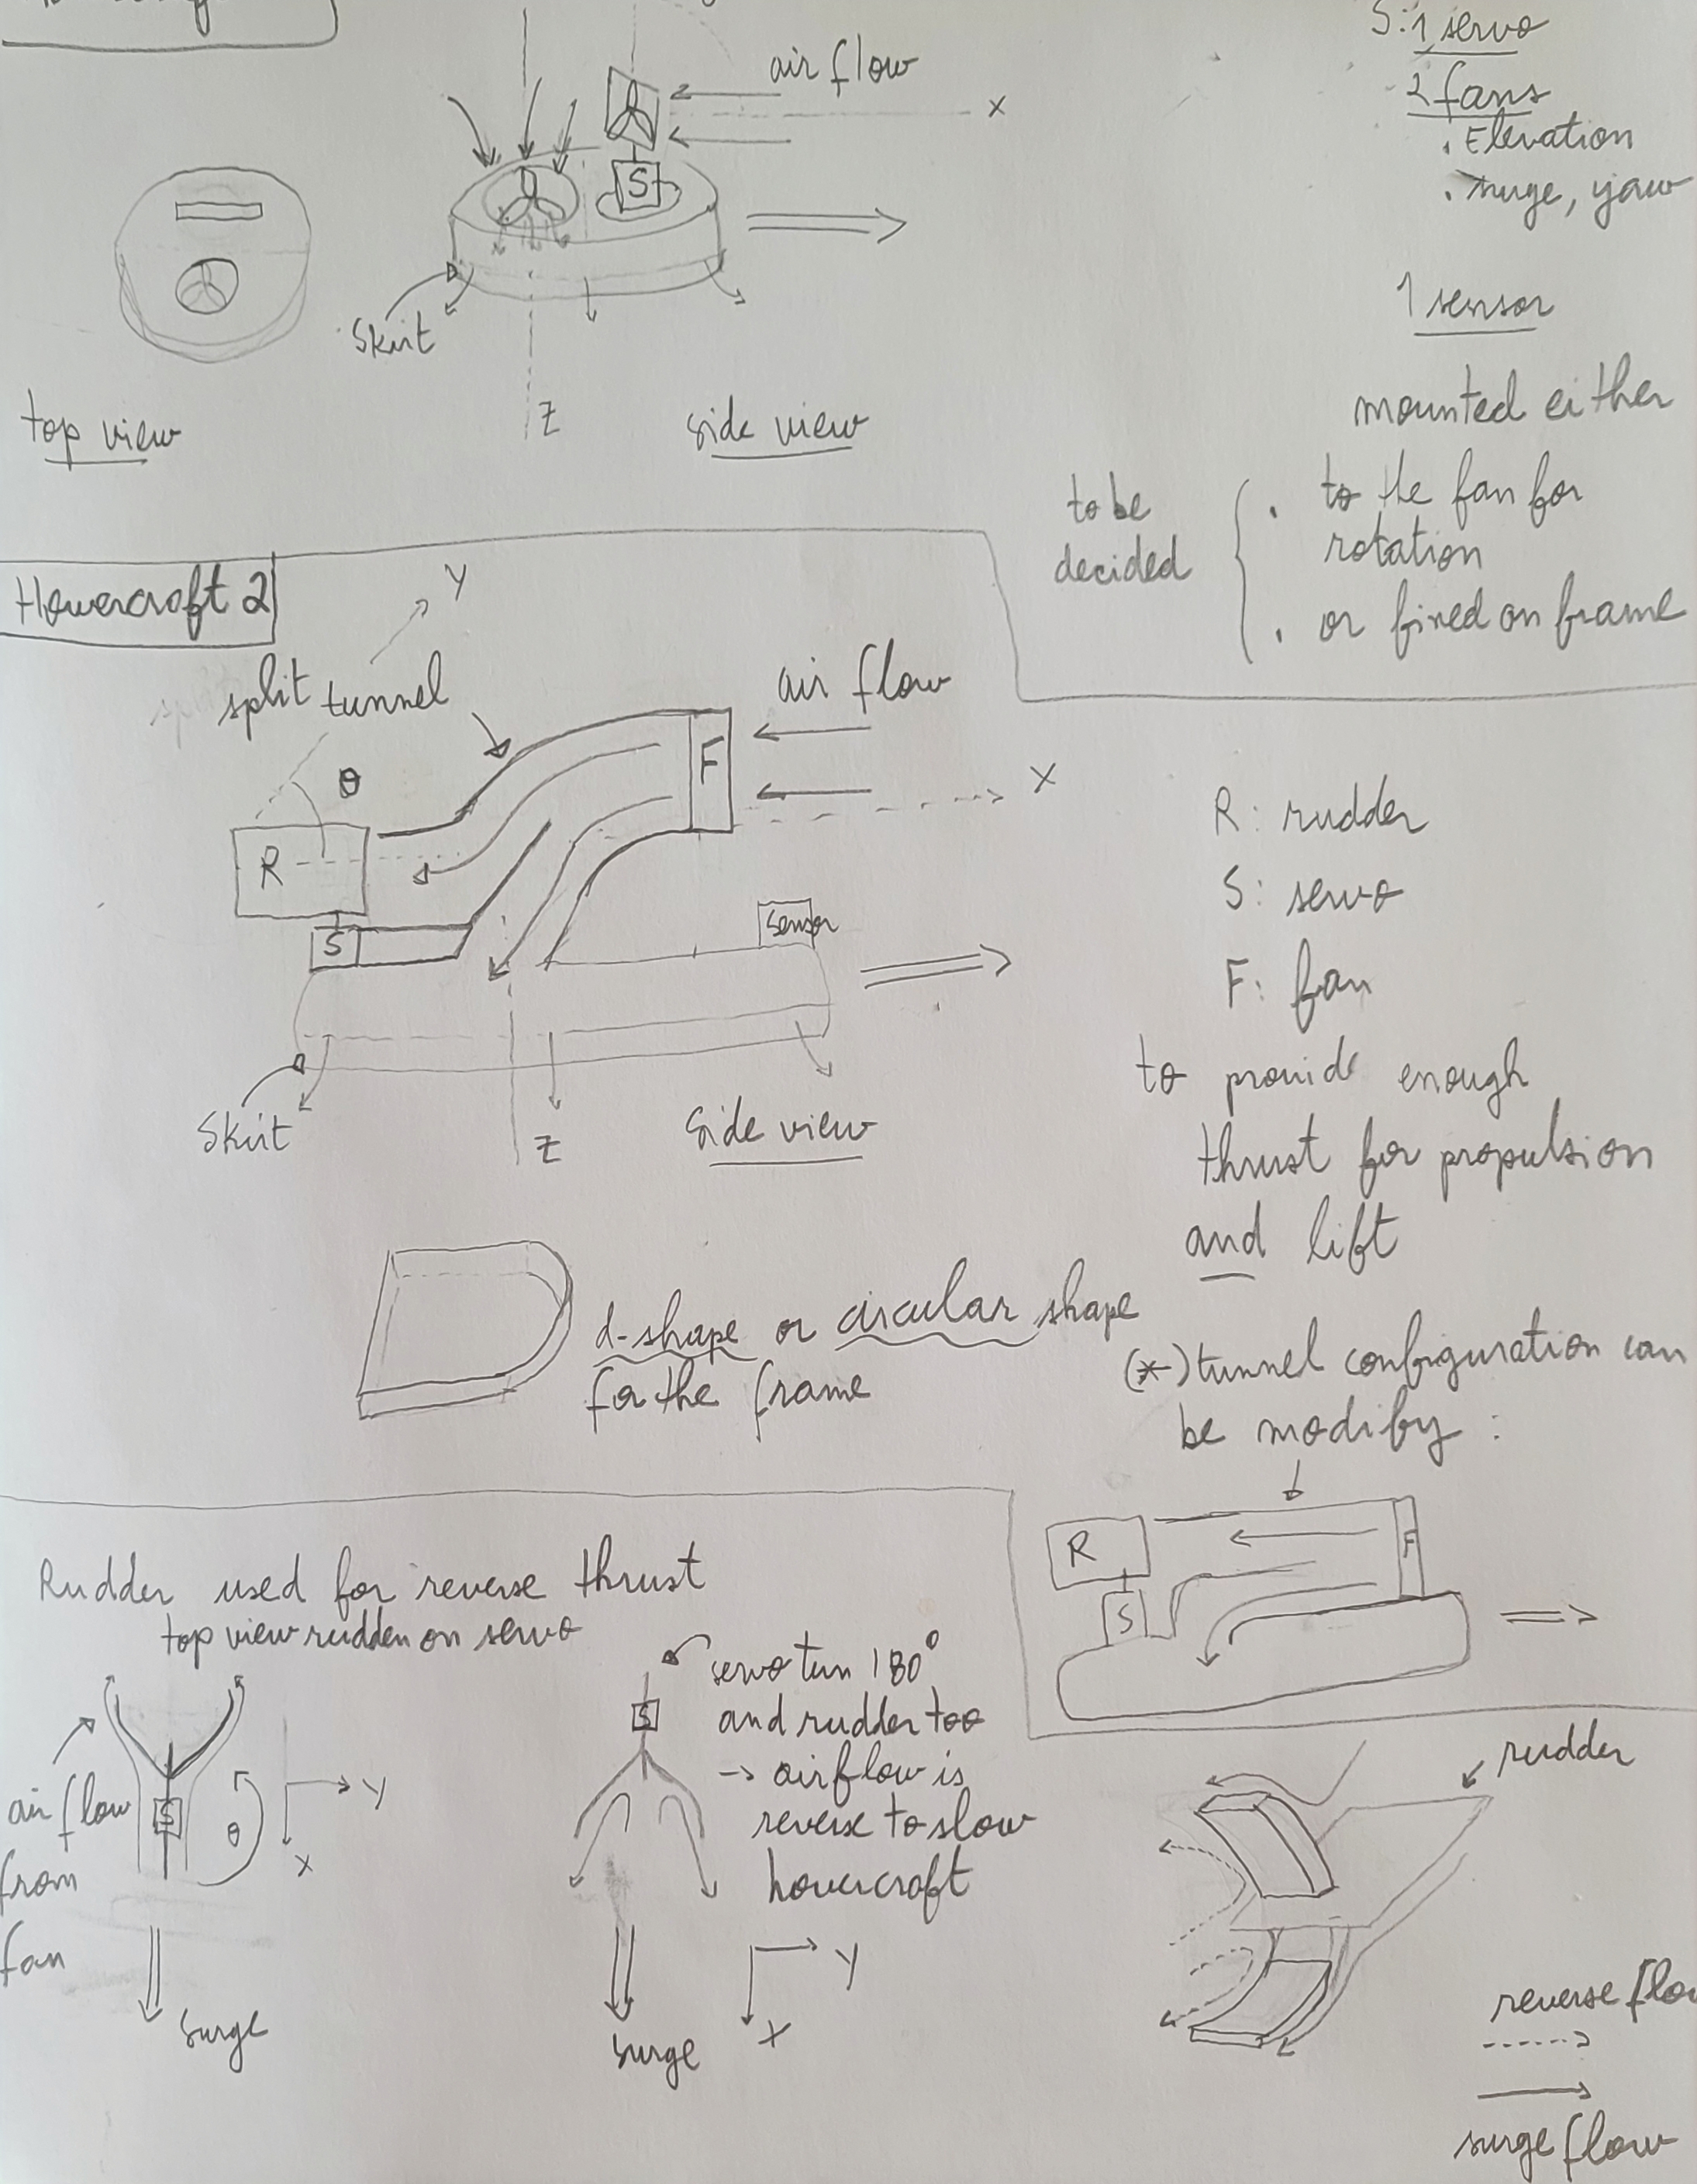 S: 1 servo
2 fans
. Elevation
. surge, yaw
1 sensor
mounted either
to be
decided
. to the fan for
rotation
. or fixed on frame
air flow
x
S
Skirt
top view
z
side view
Hovercraft 2
y
split tunnel
air flow
F
θ
x
R
S
Sensor
Skirt
z
Side view
R: rudder
S: servo
F: fan
to provide enough
thrust for propulsion
and lift
d-shape or circular shape
for the frame
(*) tunnel configuration can
be modify :
R
F
S
Rudder used for reverse thrust
top view rudder on servo
air flow
from
fan
S
θ
y
x
surge
servo turn 180°
and rudder too
→ airflow is
reverse to slow
hovercraft
S
y
x
surge
rudder
reverse flow
surge flow